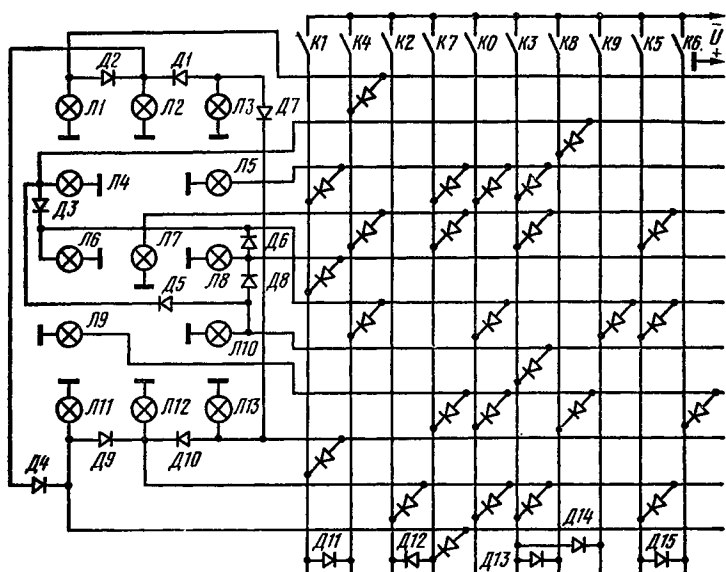 К1 К4 К2 К7 К0 К3 К8 К9 К5 К6
– U +
Д2 Д1
Л1 Л2 Л3 Д7
Л4 Л5
Д3
Л6 Л7 Л8 Д6
Д5 Д8
Л9 Л10
Л11 Л12 Л13
Д9 Д10
Д4
Д11 Д12 Д13 Д14 Д15